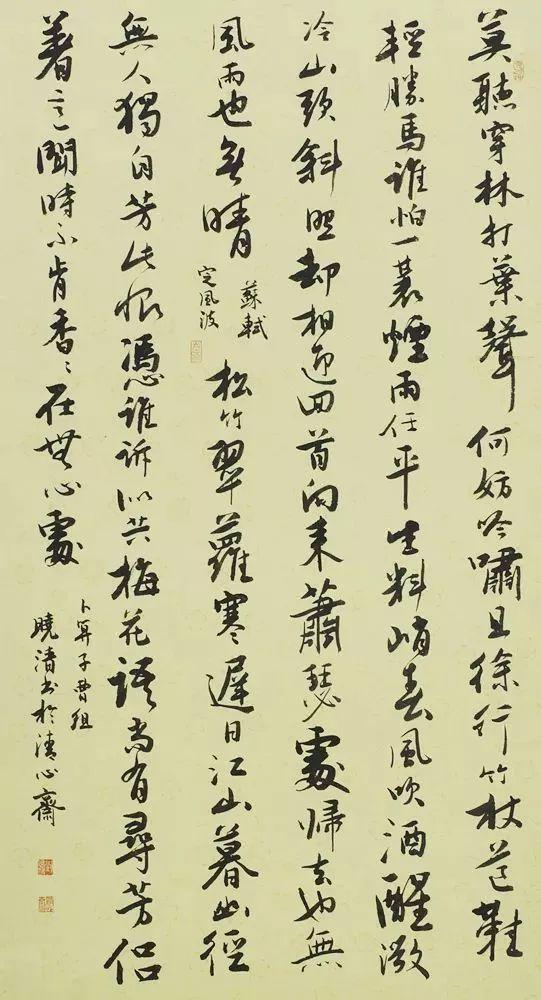 莫聽穿林打葉聲何妨吟嘯且徐行竹杖芒鞋
輕勝馬誰怕一蓑煙雨任平生料峭春風吹酒醒微
冷山頭斜照却相迎回首向來蕭瑟處歸去也無
風雨也無晴
蘇軾
定風波
松竹翠蘿寒遲日江山暮幽徑
無人獨自芳此恨憑誰訴似共梅花語尚有尋芳侶
著意聞時不肯香々在無心處
卜算子曹組
曉清書於清心齋